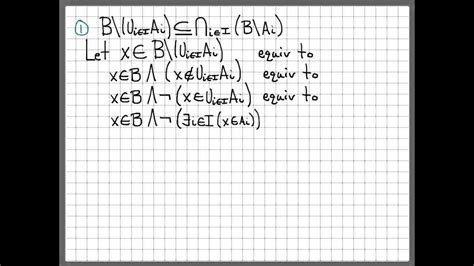 ① B\(∪i∈I Ai) ⊆ ⋂i∈I (B\Ai)
Let x ∈ B\(∪i∈I Ai) equiv to
x∈B ∧ (x∉∪i∈I Ai) equiv to
x∈B ∧ ¬(x∈∪i∈I Ai) equiv to
x∈B ∧ ¬(∃i∈I (x∈Ai))